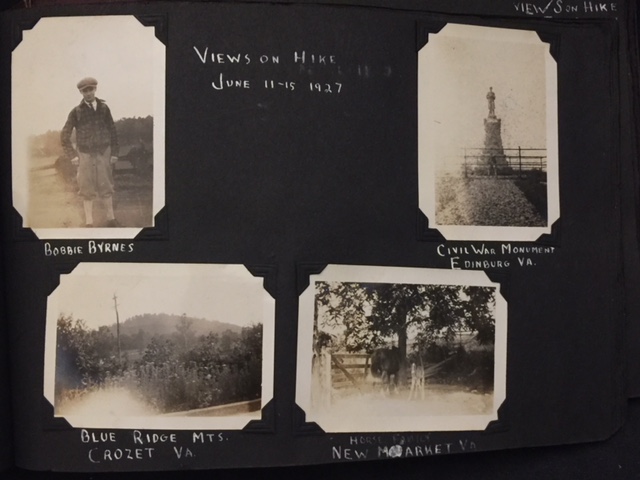 VIEWS ON HIKE
VIEWS ON HIKE
JUNE 11-15 1927
BOBBIE BYRNES
CIVIL WAR MONUMENT
EDINBURG VA.
BLUE RIDGE MTS.
CROZET VA.
HORSE FAMILY
NEW MARKET VA